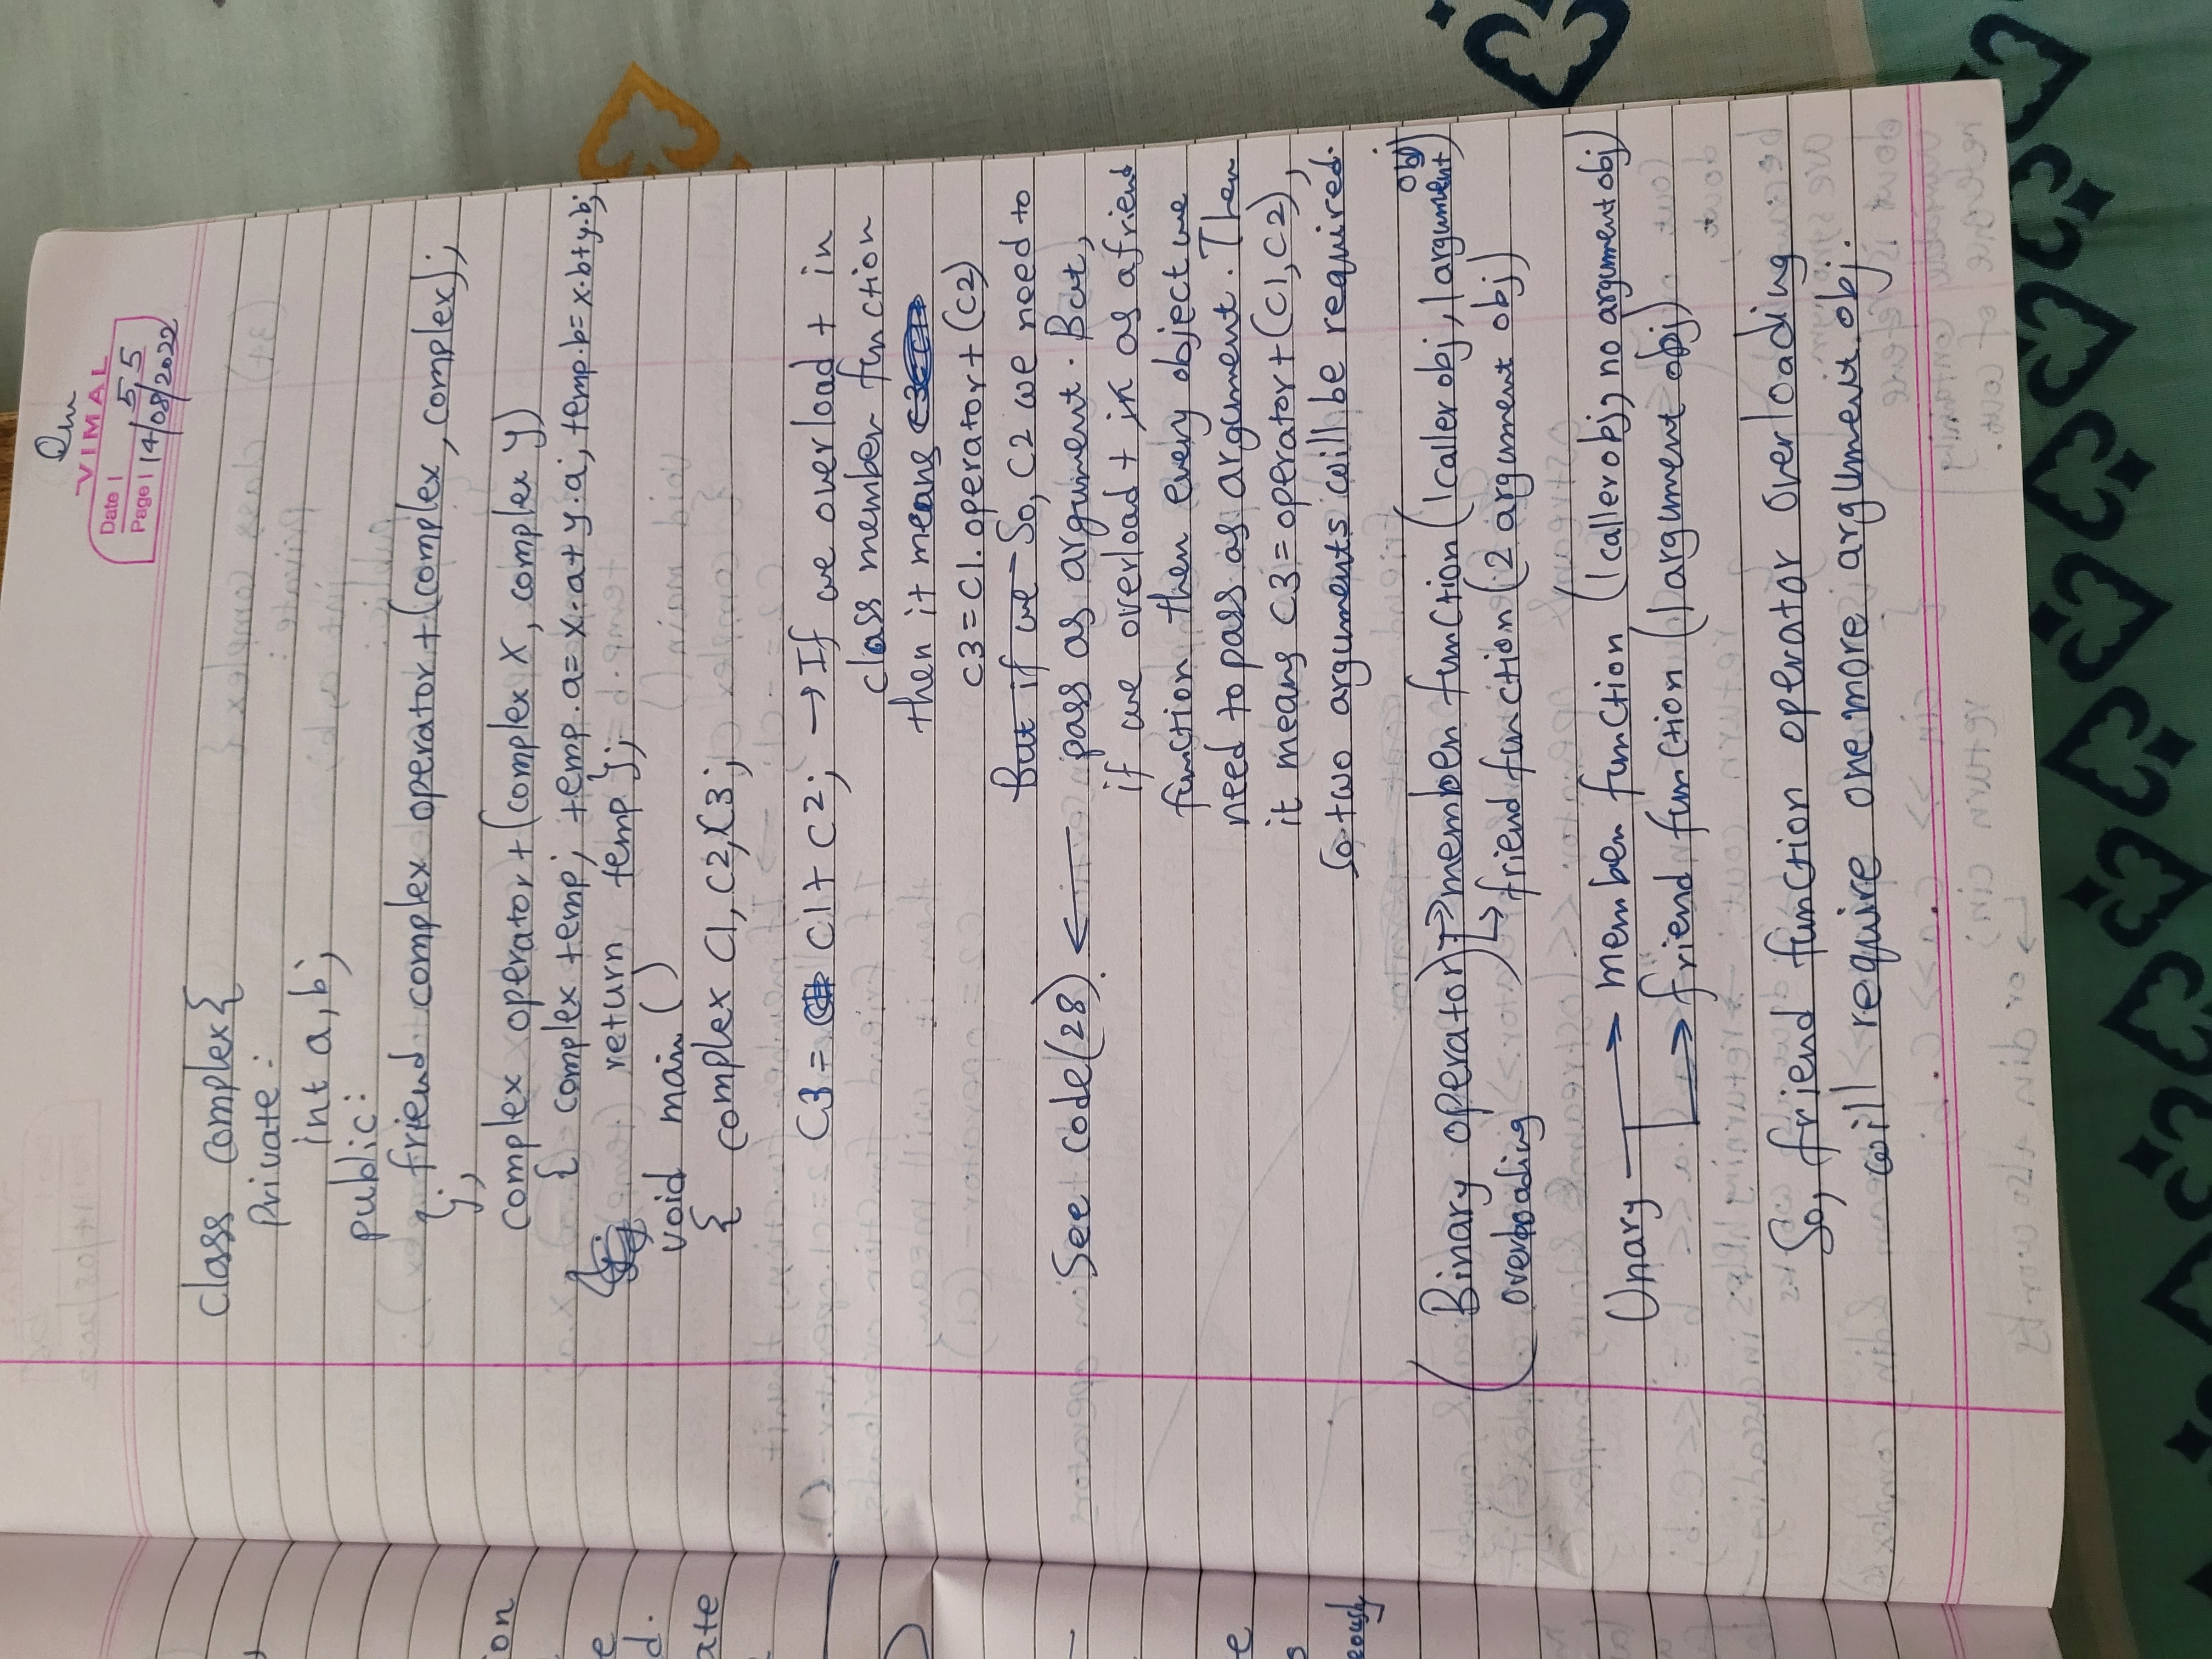 Om
VIMAL
Date | 55
Page | 14/08/2022
class complex{
private :
int a, b;
public:
friend complex operator +(complex, complex);
};
complex operator +(complex X, complex y)
{ complex temp; temp.a= x.a+y.a; temp.b= x.b+y.b;
return temp };
void main ()
{ complex C1, C2, C3;
C3 = C1+ C2; → If we overload + in
class member function
then it means
C3 = C1. operator + (C2)
But if we So, C2 we need to
See code(28) ← pass as argument. But,
if we overload + in as a friend
function then every object we
need to pass as argument. Then
it means C3 = operator + (C1, C2),
So two arguments will be required.
(Binary operator → member function (1 caller obj, 1 argument obj)
overloading) ↳ friend function (2 argument obj)
Unary → member function (1 caller obj, no argument obj)
→ friend function (1 argument obj)
So, friend function operator overloading
will require one more argument obj.
on
e
d.
ate
e
s
eously